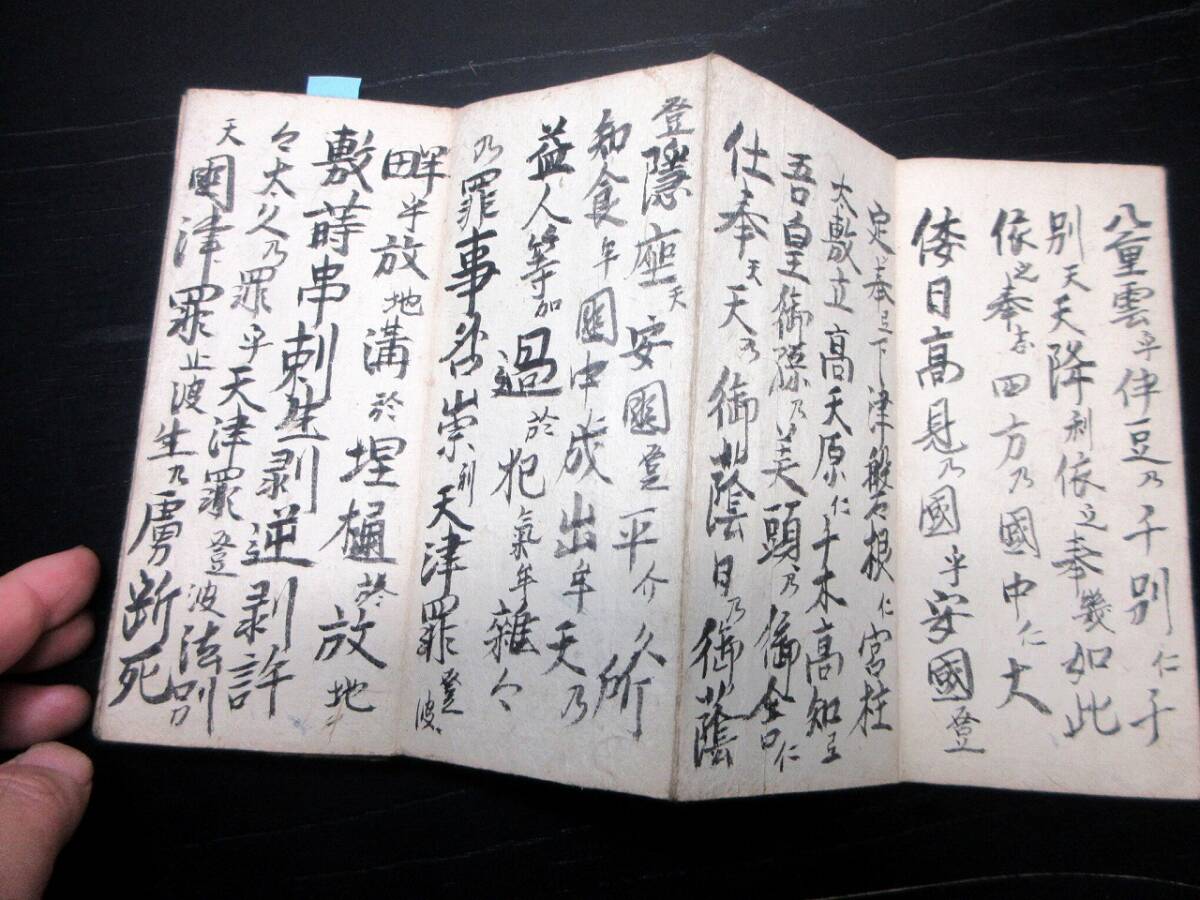 八重雲乎伊豆乃千別仁千
別天天降利依之奉幾如此
依之奉志四方乃國中仁大
倭日高見乃國乎安國登
定奉足下津般石根仁宮柱
太敷立高天原仁千木高知天
吾皇御孫乃美頭乃御舎仁
仕奉天天乃御蔭日乃御蔭
登隱座天安圀登平介久所
知食牟圀中成出牟天乃
益人等加過於犯氣牟雜々
乃罪事咎崇利天津罪登波
畔乎放地溝於埋樋於放地
敷蒔串刺生剥逆剥許
々太久乃罪乎天津罪登波法別
天圀津罪止波生乃膚断死